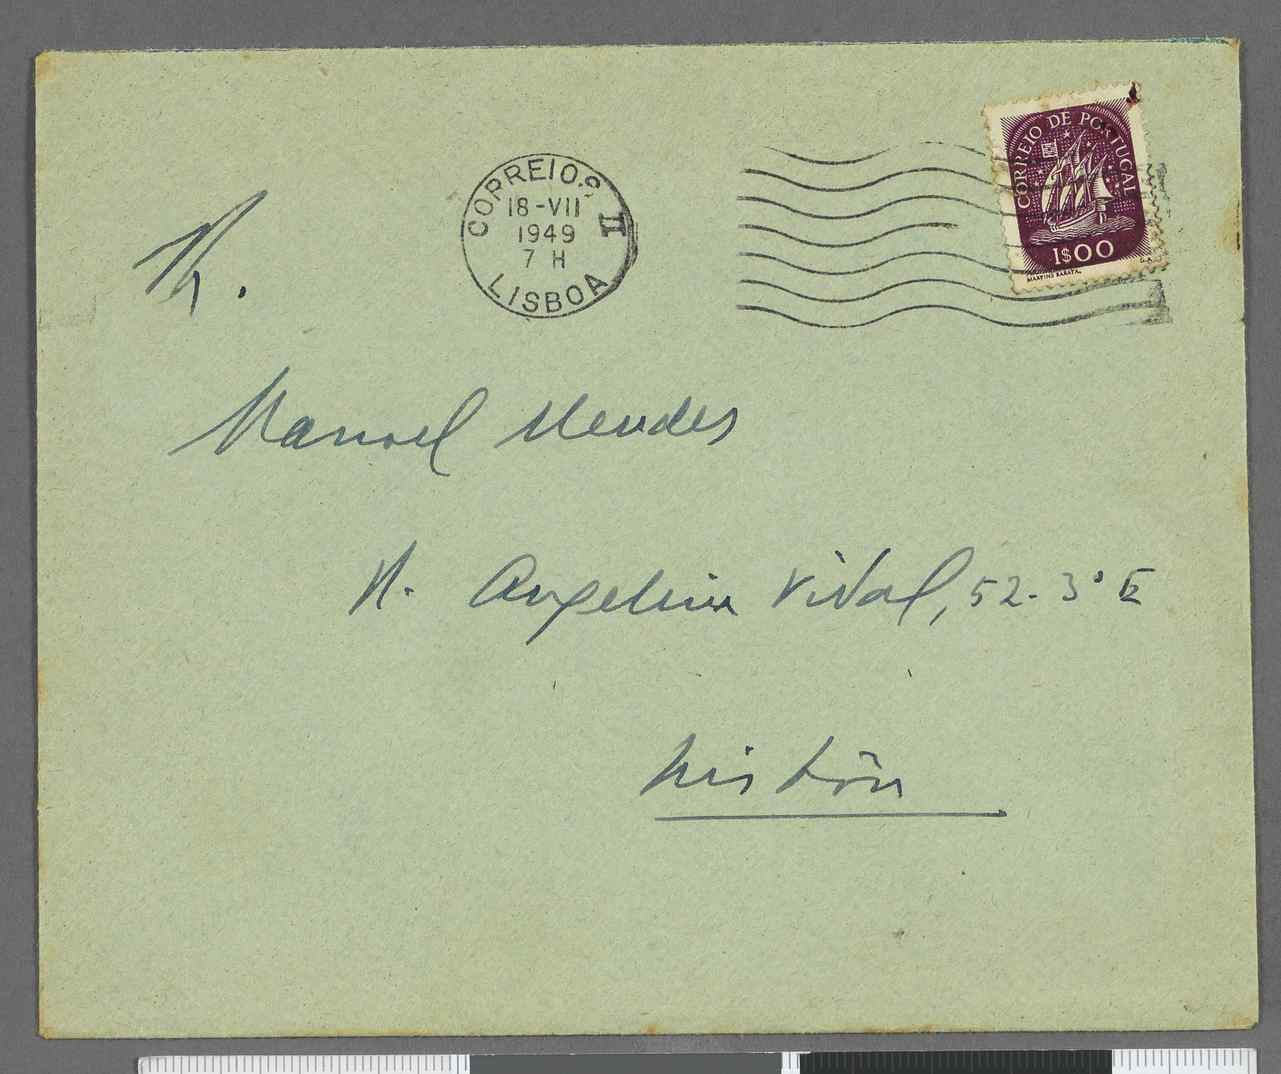 CORREIO DE PORTUGAL
1$00
MARTINS BARATA.
CORREIOS II
18-VII
1949
7 H
LISBOA
Manuel Mendes
R. Angelina Vidal, 52-3º E
Lisbôa